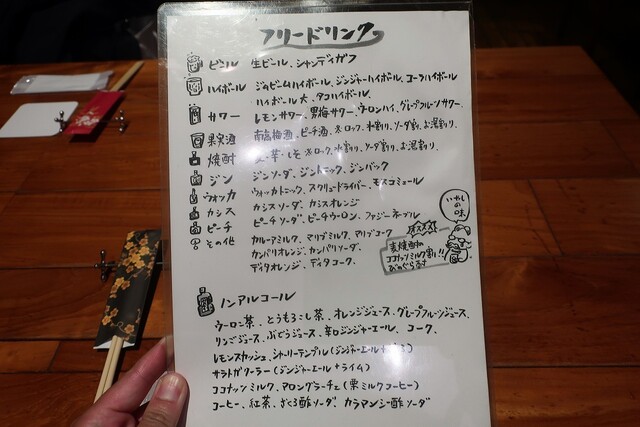 フリードリンク
ビール 生ビール、シャンディガフ
ハイボール ジムビームハイボール、ジンジャーハイボール、コーラハイボール
ハイボール大、タコハイボール
サワー レモンサワー、男梅サワー、ウーロンハイ、グレープフルーツサワー
果実酒 南高梅酒、ピーチ酒 ※ロック、水割り、ソーダ割り、お湯割り、
焼酎 麦・芋・しそ ※ロック、水割り、ソーダ割り、お湯割り、
ジン ジンソーダ、ジントニック、ジンバック
ウォッカ ウォッカトニック、スクリュードライバー、モスコミュール
カシス カシスソーダ、カシスオレンジ
ピーチ ピーチソーダ、ピーチウーロン、ファジーネーブル
その他 カルーアミルク、マリブミルク、マリブコーク
カンパリオレンジ、カンパリソーダ、
ディタオレンジ、ディタコーク、
いやしの味
オススメ!
麦焼酎の
ココナッツミルク割り!!
ノンアルコール
ウーロン茶、とうもろこし茶、オレンジジュース、グレープフルーツジュース、
リンゴジュース、ぶどうジュース、辛口ジンジャーエール、コーク、
レモンスカッシュ、シャーリーテンプル(ジンジャーエール+
サラトガクーラー(ジンジャーエール+ライム)
ココナッツミルク、アロングラーチェ(栗ミルクコーヒー)
コーヒー、紅茶、ざくろ酢ソーダ、カラマンシー酢ソーダ